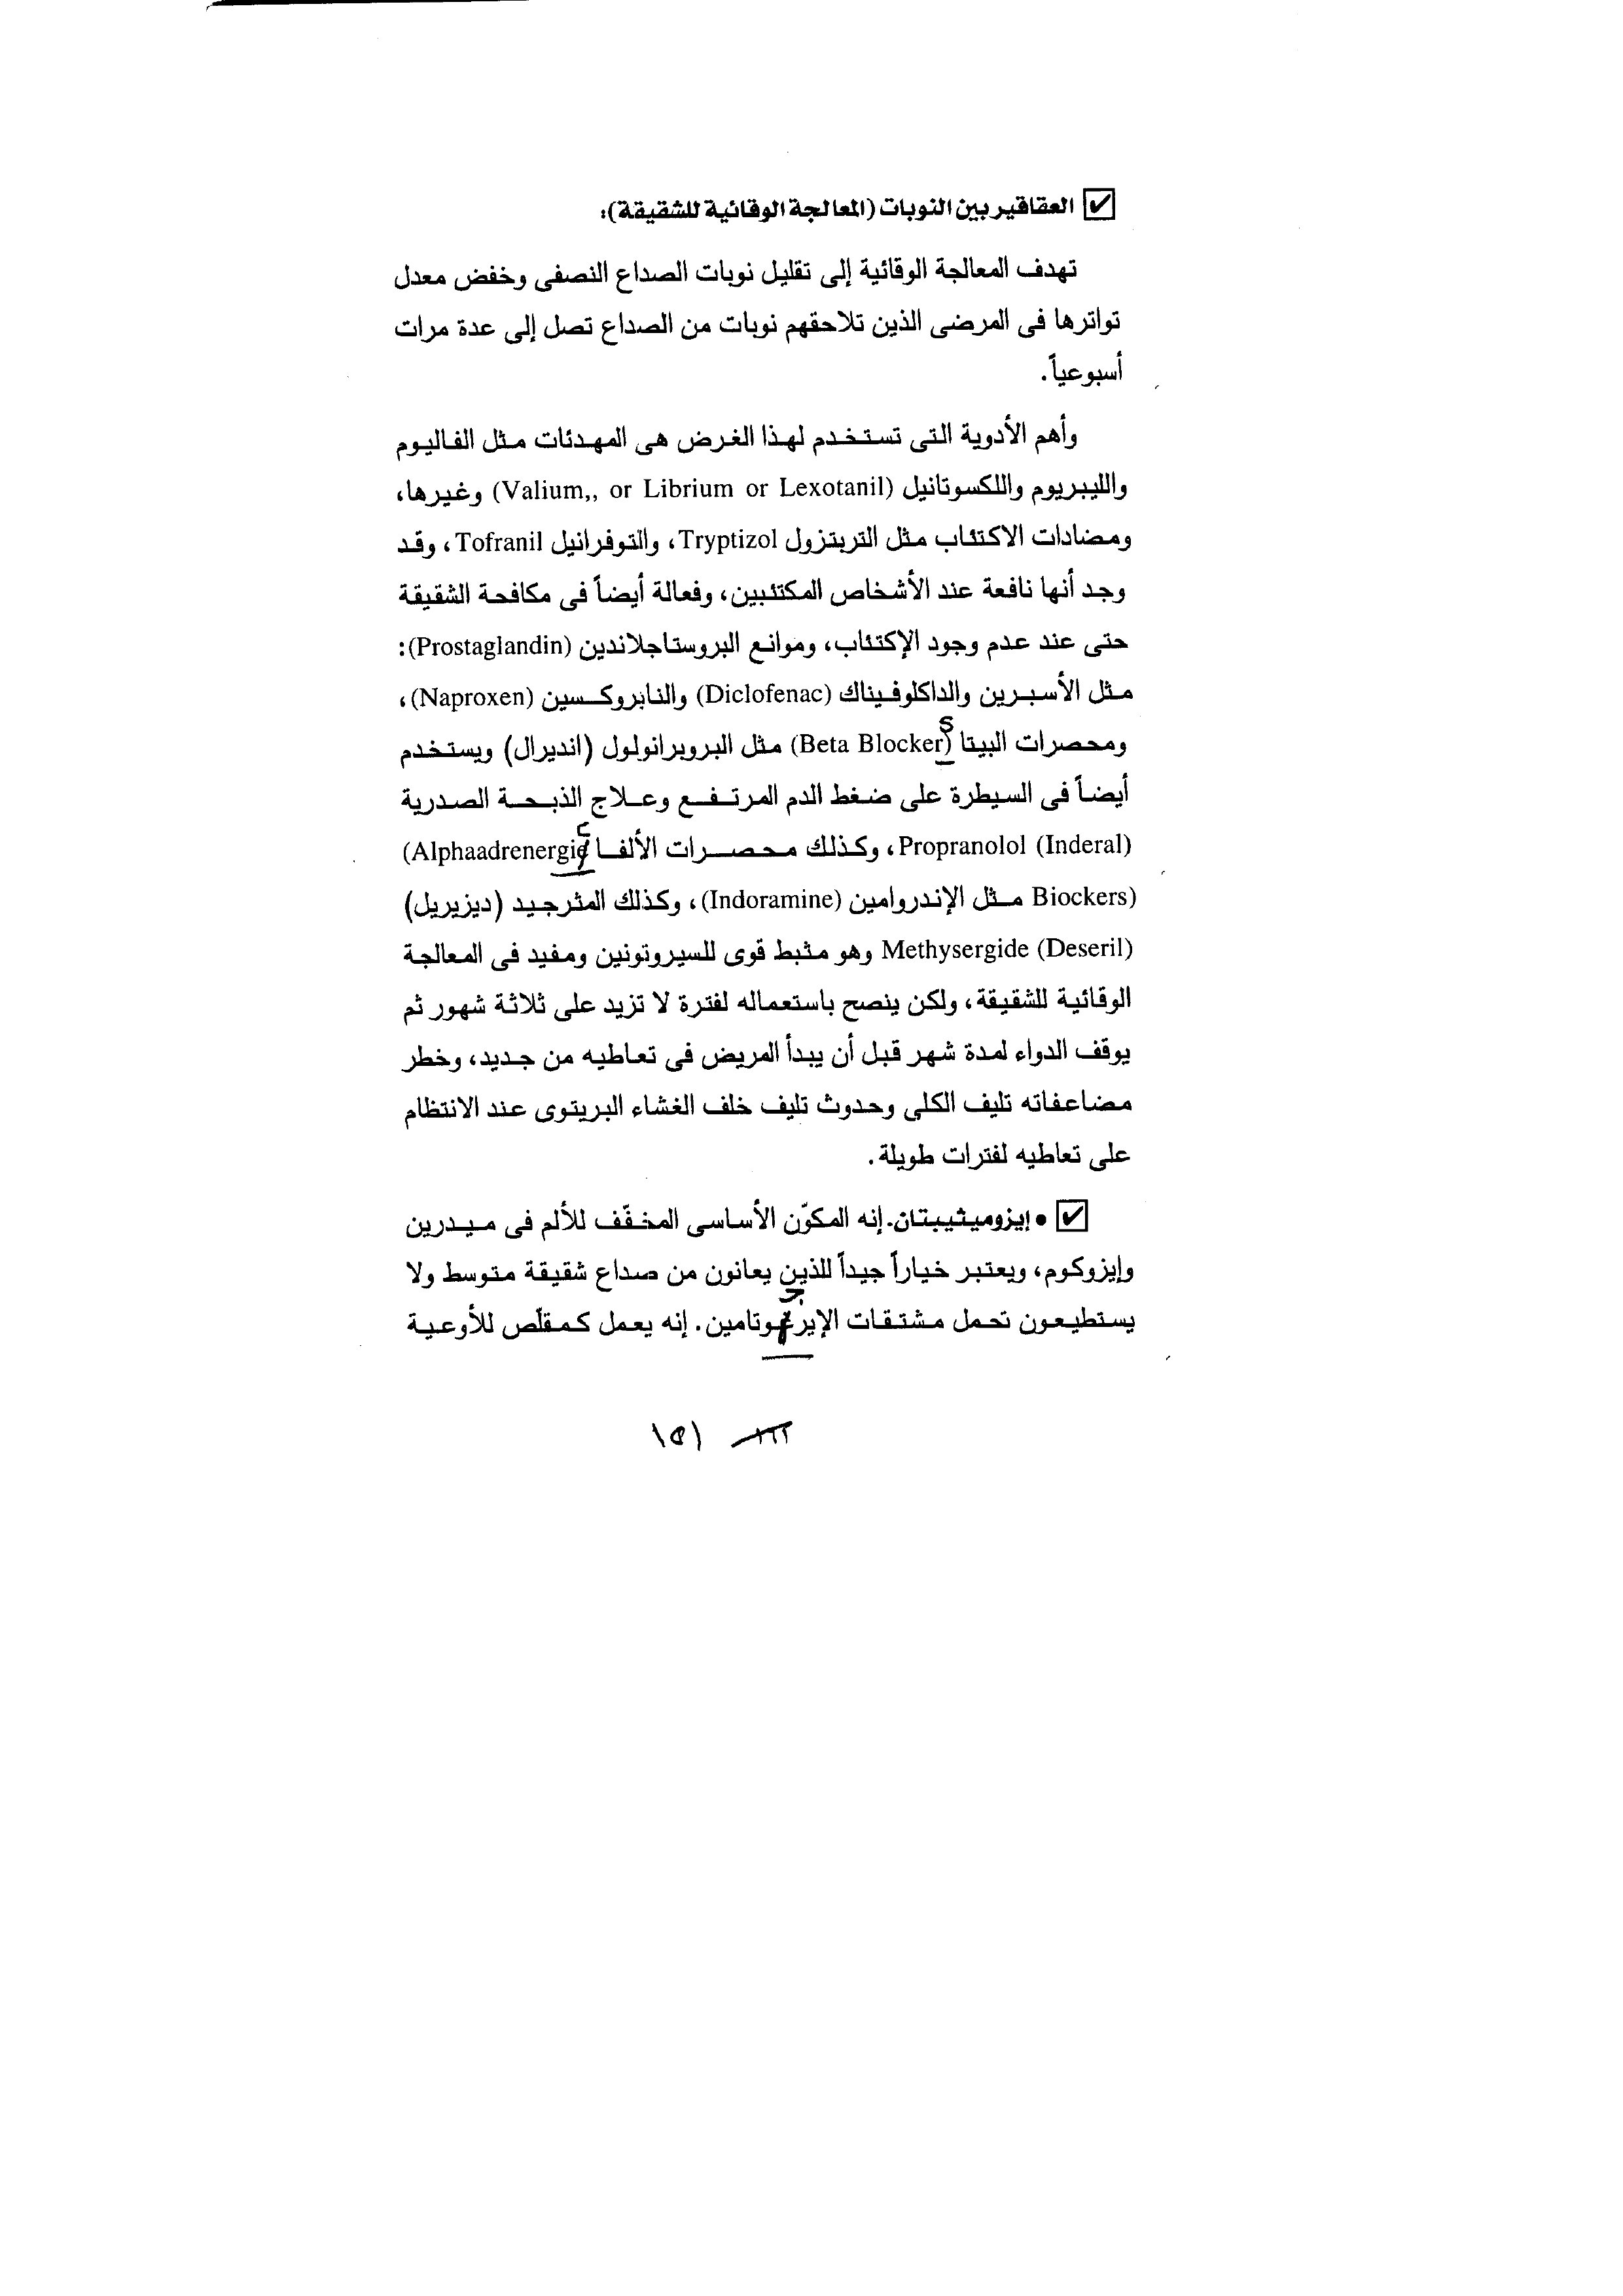 ☑ العقاقير بين النوبات (المعالجة الوقائية للشقيقة):
تهدف المعالجة الوقائية إلى تقليل نوبات الصداع النصفى وخفض معدل
تواترها فى المرضى الذين تلاحقهم نوبات من الصداع تصل إلى عدة مرات
أسبوعياً.
وأهم الأدوية التى تستخدم لهذا الغرض هى المهدئات مثل الفاليوم
والليبريوم واللكسوتانيل (Valium,, or Librium or Lexotanil) وغيرها،
ومضادات الاكتئاب مثل التربتزول Tryptizol، والتوفرانيل Tofranil، وقد
وجد أنها نافعة عند الأشخاص المكتئبين، وفعالة أيضاً فى مكافحة الشقيقة
حتى عند عدم وجود الإكتئاب، وموانع البروستاجلاندين (Prostaglandin):
مثل الأسبرين والداكلوفيناك (Diclofenac) والنابروكسين (Naproxen)،
ومحصرات البيتا (Beta Blockers) مثل البروبرانولول (انديرال) ويستخدم
أيضاً فى السيطرة على ضغط الدم المرتفع وعلاج الذبحة الصدرية
Propranolol (Inderal)، وكذلك محصرات الألفا (Alphaadrenergic
Biockers) مثل الإندروامين (Indoramine)، وكذلك المثرجيد (ديزيريل)
Methysergide (Deseril) وهو مثبط قوى للسيروتونين ومفيد فى المعالجة
الوقائية للشقيقة، ولكن ينصح باستعماله لفترة لا تزيد على ثلاثة شهور ثم
يوقف الدواء لمدة شهر قبل أن يبدأ المريض فى تعاطيه من جديد، وخطر
مضاعفاته تليف الكلى وحدوث تليف خلف الغشاء البريتوى عند الانتظام
على تعاطيه لفترات طويلة.
☑ • إيزوميثيبتان. إنه المكوّن الأساسى المخفّف للألم فى ميدرين
وإيزوكوم، ويعتبر خياراً جيداً للذين يعانون من صداع شقيقة متوسط ولا
يستطيعون تحمل مشتقات الإيرجوتامين. إنه يعمل كمقلّص للأوعية
١٥١